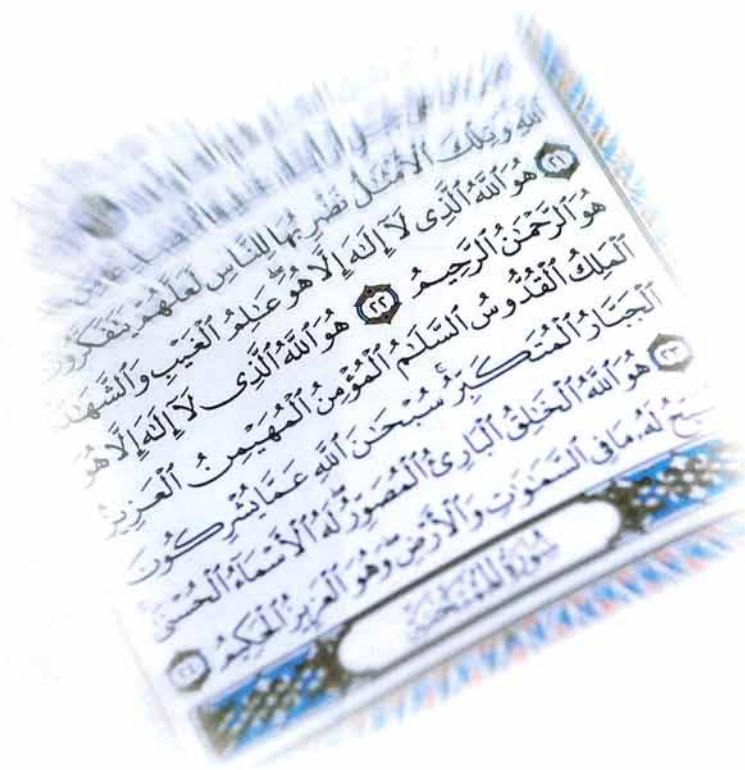 ٱللَّهِ وَتِلْكَ ٱلْأَمْثَٰلُ نَضْرِبُهَا لِلنَّاسِ لَعَلَّهُمْ يَتَفَكَّرُونَ
٢١ هُوَ ٱللَّهُ ٱلَّذِى لَآ إِلَٰهَ إِلَّا هُوَ ۖ عَٰلِمُ ٱلْغَيْبِ وَٱلشَّهَٰدَ
هُوَ ٱلرَّحْمَٰنُ ٱلرَّحِيمُ ٢٢ هُوَ ٱللَّهُ ٱلَّذِى لَآ إِلَٰهَ إِلَّا هُوَ
ٱلْمَلِكُ ٱلْقُدُّوسُ ٱلسَّلَٰمُ ٱلْمُؤْمِنُ ٱلْمُهَيْمِنُ ٱلْعَزِيزُ
ٱلْجَبَّارُ ٱلْمُتَكَبِّرُ ۚ سُبْحَٰنَ ٱللَّهِ عَمَّا يُشْرِكُونَ
٢٣ هُوَ ٱللَّهُ ٱلْخَٰلِقُ ٱلْبَارِئُ ٱلْمُصَوِّرُ ۖ لَهُ ٱلْأَسْمَآءُ ٱلْحُسْنَىٰ
يُسَبِّحُ لَهُۥ مَا فِى ٱلسَّمَٰوَٰتِ وَٱلْأَرْضِ ۖ وَهُوَ ٱلْعَزِيزُ ٱلْحَكِيمُ ٢٤
سُورَةُ المُمْتَحَنَةِ